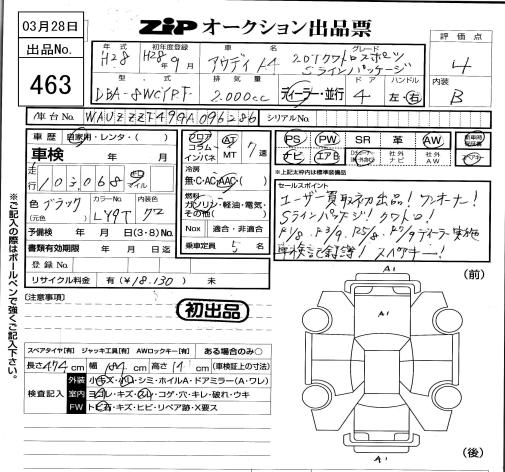 03月28日
出品No.
463
ZIP オークション出品票
年式 初年度登録 車名 グレード
H28 H28年9月 アウディ A4 2.0Tクワトロスポーツ
Sラインパッケージ
評価点
4
内装
B
型式 排気量 ドア ハンドル
DBA-8WCYRF 2.000cc ディーラー・並行 4 左・右
車台No. シリアルNo.
車歴 自家用・レンタ・( )
車検 年 月
走行 103,068 km マイル
色 ブラック
(元色)
カラーNo. LY9T 内装色 クロ
予備検 年 月 日(3・8)No.
書類有効期限 年 月 日迄
登録No.
リサイクル料金 有(¥18.130) 未
フロア
コラム
インパネ
AT
MT 7速
冷房
無・C・AC・AAC・( )
燃料
ガソリン・軽油・電気・
その他( )
Nox 適合・非適合
乗車定員 5名
PS PW SR 革 AW
ナビ エアB 社外ナビ 社外AW
※上記太枠内は標準装備品
セールスポイント
ユーザー買取初出品!ワンオーナー!
Sラインパッケージ!クワトロ!
スペアキー!
※ご記入の際はボールペンで強くご記入下さい。
[注意事項]
初出品
スペアタイヤ[有] ジャッキ工具[有] AWロックキー[有] ある場合のみ○
長さ474cm 幅184cm 高さ cm (車検証上の寸法)
検査記入
外装 小キズ・小凹・シミ・ホイルA・ドアミラー(A・ワレ)
室内 ヨゴレ・キズ・スレ・コゲ・穴・キレ・破れ・ウキ
FW トビ石・キズ・ヒビ・リペア跡・X要ス
(前)
A1
A1
A1
(後)